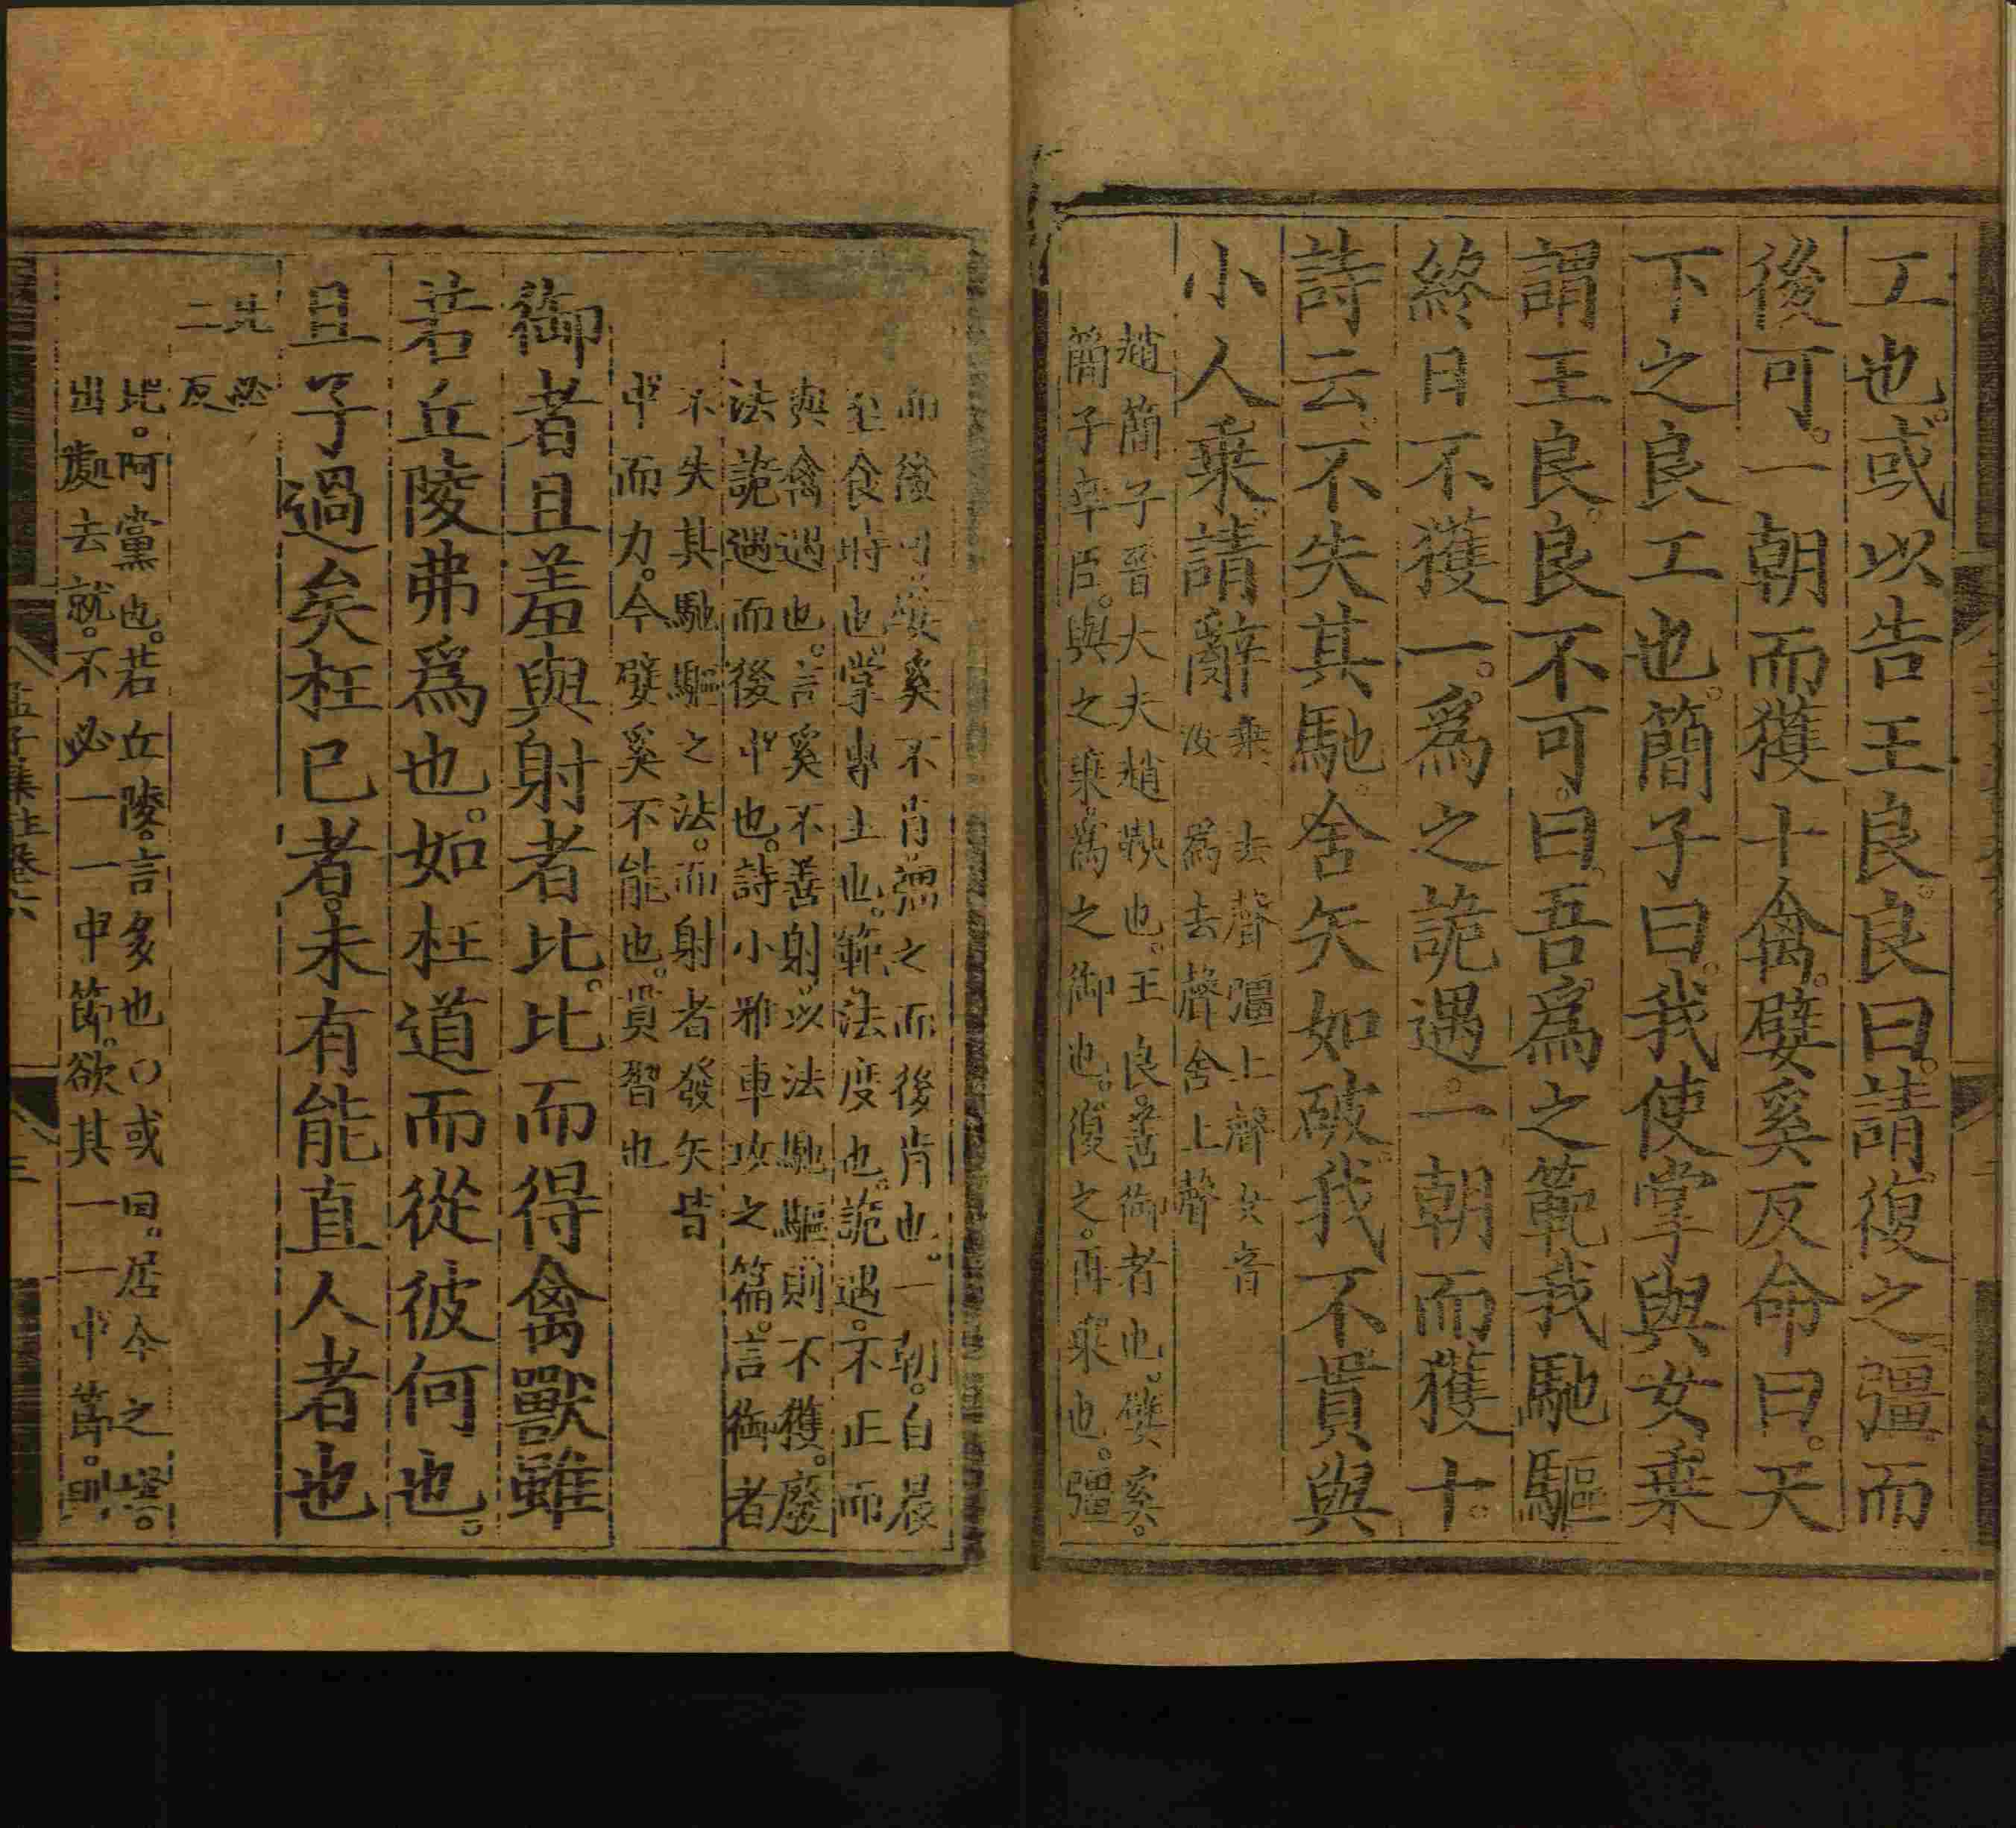 工也。或以告王良。良曰。請復之。彊而
後可。一朝而獲十禽。嬖奚反命曰。天
下之良工也。簡子曰。我使掌與女乗
謂王良。良不可。曰。吾爲之範我馳驅
終日不獲一。爲之詭遇。一朝而獲十。
詩云。不失其馳。舍矢如破。我不貫與
小人乗。請辭
乗去聲彊上聲女音
汝爲去聲舍上聲
趙簡子晉大夫趙鞅也。王良。善御者也。嬖奚。
簡子幸臣。與之乗。爲之御也。復之。再乗也。彊
而後可。嬖奚不肯。彊之而後肯也。一朝。自晨
至食時也。掌專主也。範。法度也。詭遇。不正而
與禽遇也。言奚不善射。以法馳驅則不獲。廢
法詭遇而後中也。詩小雅車攻之篇。言御者
不失其馳驅之法。而射者發矢皆
中而力。今嬖奚不能也。貫習也
御者且羞與射者比。比而得禽獸雖
若丘陵弗爲也。如枉道而從彼何也。
且子過矣枉己者。未有能直人者也
比必
二反
比。阿黨也。若丘陵。言多也〇或曰。居今之世。
出處去就。不必一一中節。欲其一一中節。則
孟子集註卷六
三